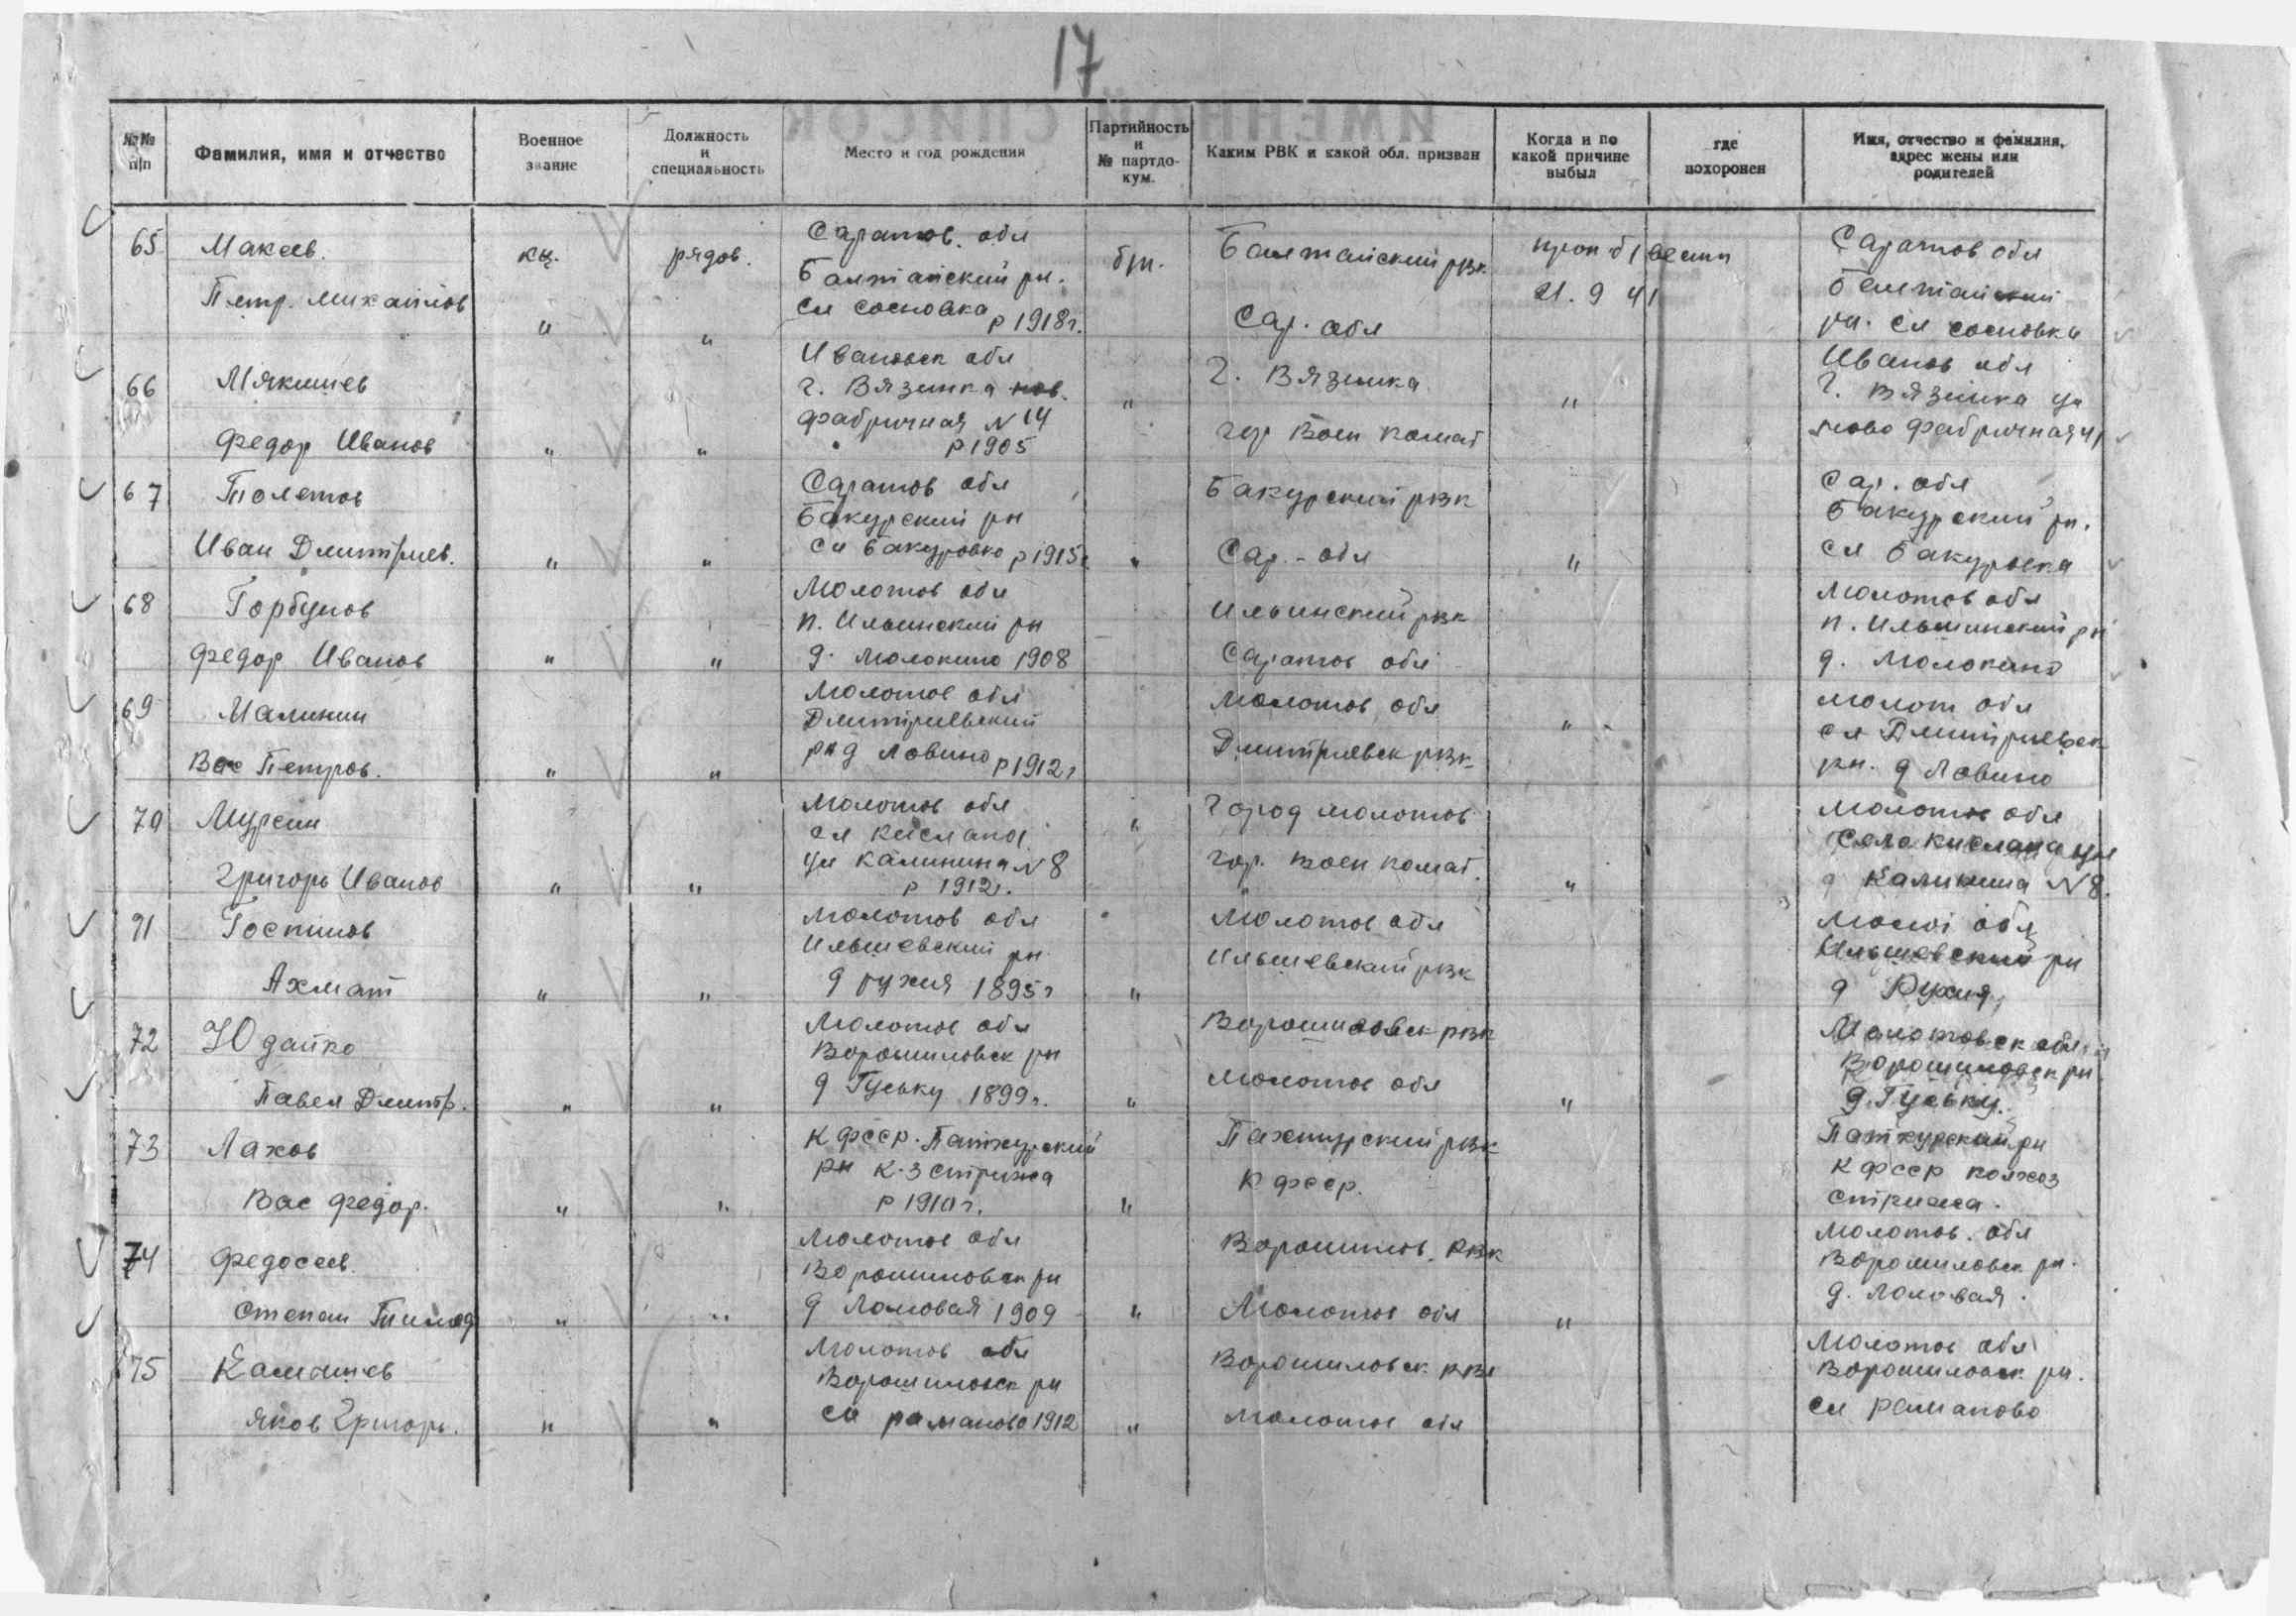 17
№№ п/п
Фамилия, имя и отчество
Военное звание
Должность и специальность
Место и год рождения
Партийность и № партдокум.
Каким РВК и какой обл. призван
Когда и по какой причине выбыл
где похоронен
Имя, отчество и фамилия, адрес жены или родителей
65 Макеев. кц. рядов. Саратов. обл б/п. Балтайский рвк проп б/вести Саратов обл
Петр. Михайлов " " Балтайский рн. 21. 9 41 Балтайский
сл сосновка р 1918г. Сар. обл рн. сл сосновка
66 Мякишев Ивановск обл г. Вязника " Иванов обл
г. Вязника нов. " г. Вязника ул
Федор Иванов " " фабричная N 14 гор Воен комат ново фабричная 14
р 1905
67 Толетов Саратов обл Бакурский рвк Сар. обл
Бакурский рн Бакурский рн.
Иван Дмитриев. " " сл Бакуровка р 1915г " Сар. - обл " сл Бакуровка
68 Горбунов Молотов обл Ильинский рвк Молотов обл
п. Ильинский рн п. Ильинский рн
Федор Иванов " " д. Молокино 1908 Саратов обл д. Молокино
69 Малинин Молотов обл Молотов обл " молот обл
Дмитриевский сл Дмитриевск
Вас Петров. " " рн д Ловино р 1912г Дмитриевск рвк рн. д Ловино
70 Мурсин Молотов обл " Город молотов Молотов обл
сл Кислана Село Кислана ул
Григорь Иванов " " ул Калинина N 8 гор. Воен комат. " Калинина N 8.
р 1912г.
91 Госпинов Молотов обл Молотов обл Молот обл
Ильшевский рн Ильшевский рвк Ильшевский рн
Ахмат " " д рухия 1895г " д Рухия
72 Юдайко Молотов обл Ворошиловск рвк Молотовск обл
Ворошиловск рн Ворошиловск рн
Павел Дмитр. " " д Гуську 1899г. " Молотов обл " д. Гуську.
73 Лахов К фсср. Паткурский Пахтурский рвк Паткурский рн
рн к-з стрижа К фсср. К фсср колхоз
Вас Федор. " " р 1910г. " стрижа.
74 Федосеев. Молотов обл Ворошилов. Рвк Молотов. обл
Ворошиловск рн Ворошиловск рн.
Степан Тимод " " д Ломовая 1909 " Молотов обл " д. Ломовая.
75 Камышев Молотов обл Ворошиловск рвк Молотов обл
Ворошиловск рн Ворошиловск рн.
Яков Григорь. " " сл романово 1912 " Молотов обл сл романово